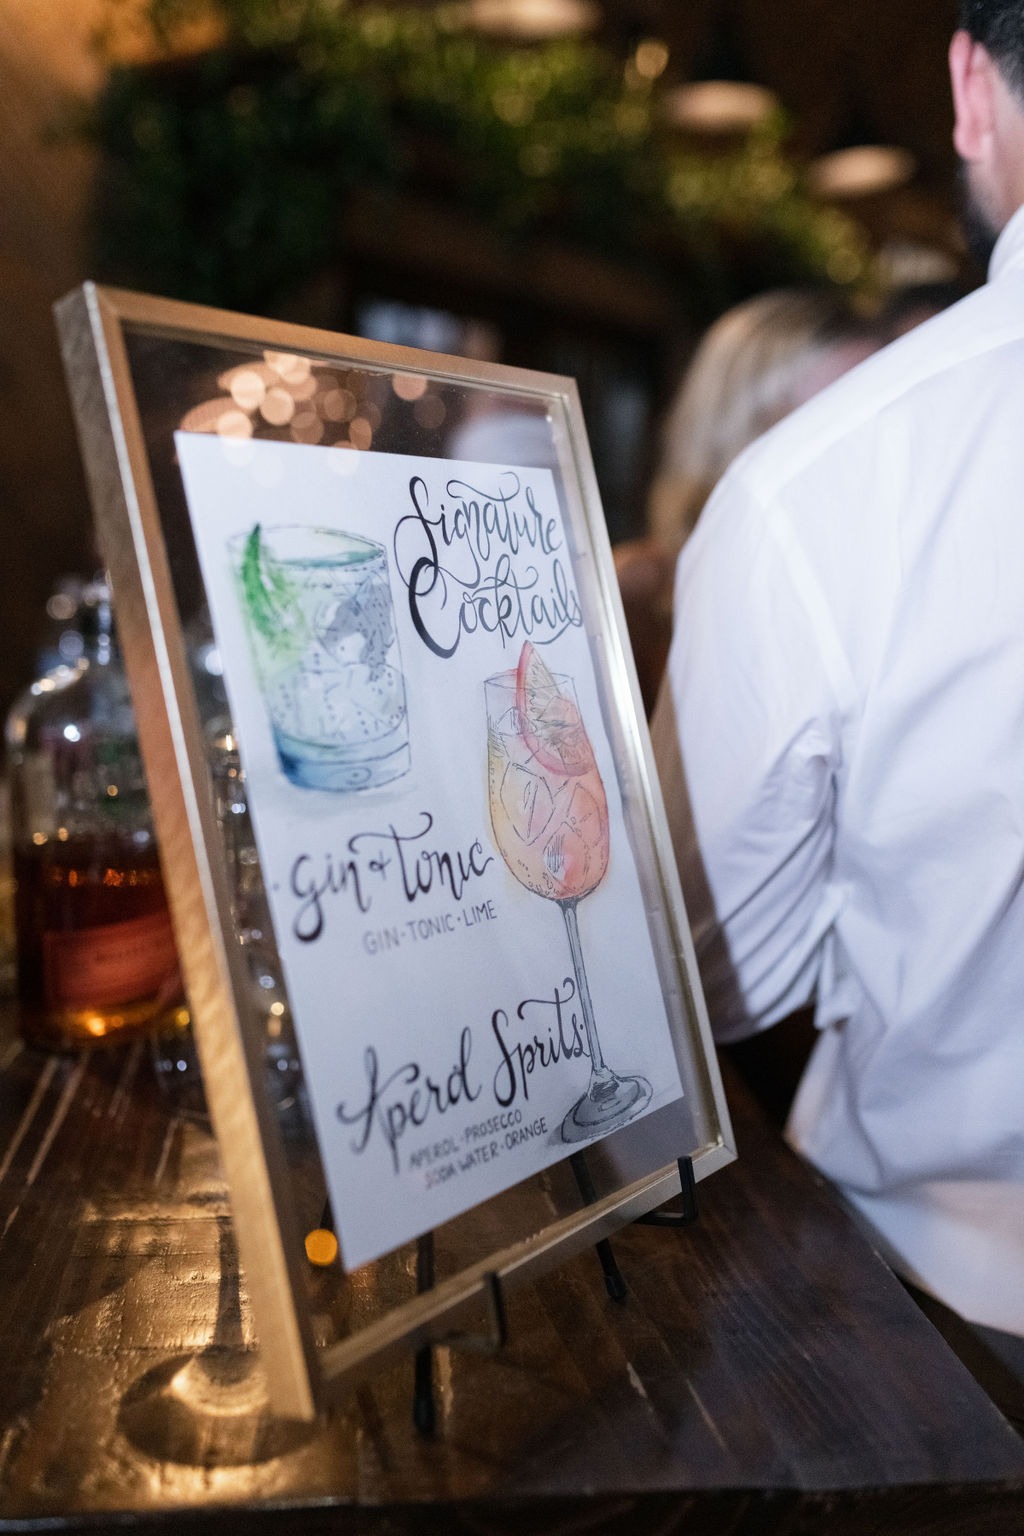 Signature
Cocktails
Gin + Tonic
GIN · TONIC · LIME
Aperol Sprits
APEROL · PROSECCO
SODA WATER · ORANGE